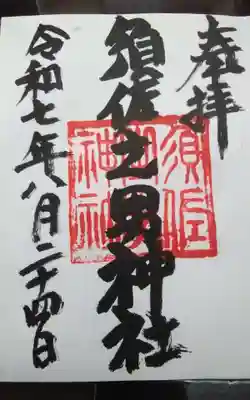 奉拝
須佐之男神社
令和七年八月二十四日